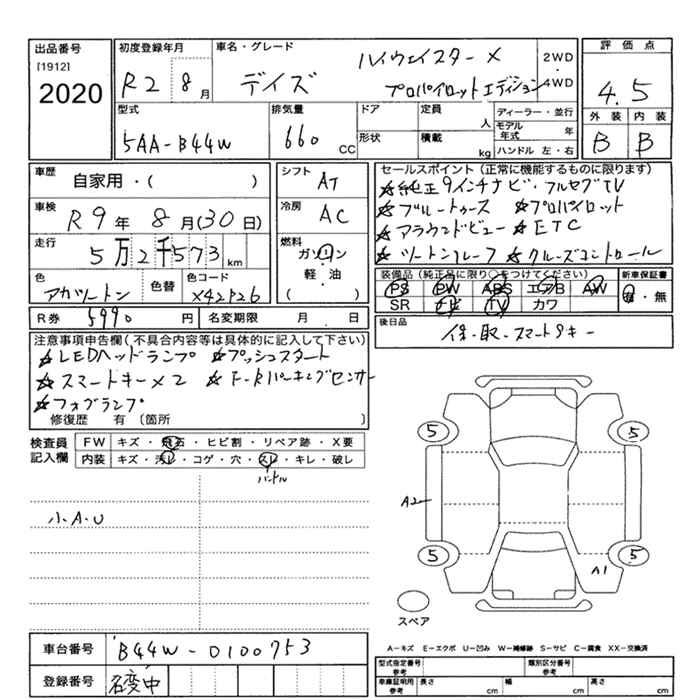 出品番号
[1912]
2020
初度登録年月
R2 8月
車名・グレード
デイズ
ハイウェイスターX
プロパイロットエディション
2WD
・
4WD
評価点
4.5
外装 内装
B B
型式
5AA-B44W
排気量
660 CC
ドア
形状
定員
人
積載
kg
ディーラー・並行
モデル年式 年
ハンドル 左・右
車歴 自家用・( )
車検 R9年8月(30日)
走行 5万2千573km
色 アカツートン
色替
色コード X42P26
シフト AT
冷房 AC
燃料
ガソリン
軽・油
( )
R券 5990円
名変期限 月 日
セールスポイント(正常に機能するものに限ります)
☆純正9インチナビ・フルセグTV
☆ブルートゥース ☆プロパイロット
☆アラウンドビュー ☆ETC
☆ツートンルーフ ☆クルーズコントロール
装備品(純正品に限り○をつけてください)
PS PW ABS エアB AW
SR ナビ TV カワ
新車保証書
有・無
後日品
保・取・スマートキー
注意事項申告欄(不具合内容等は具体的に記入して下さい)
☆LEDヘッドランプ ☆プッシュスタート
☆スマートキー×2 ☆F・Rパーキングセンサー
☆フォグランプ
修復歴 有〔箇所 〕
検査員記入欄
FW キズ・飛石・ヒビ割・リペア跡・X要
内装 キズ・汚レ・コゲ・穴・スレ・キレ・破レ
ハンドル
小A・U
5
5
A2
5
5
A1
スペア
A-キズ E-エクボ U-凹み W-補修跡 S-サビ C-腐食 XX-交換済
車台番号 B44W-0100753
登録番号 名変中
型式指定番号 参考
類別区分番号 参考
車庫証明用 参考
長さ cm
幅 cm
高さ cm